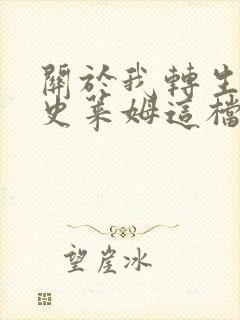 關於我轉生
史萊姆這檔
望崖冰